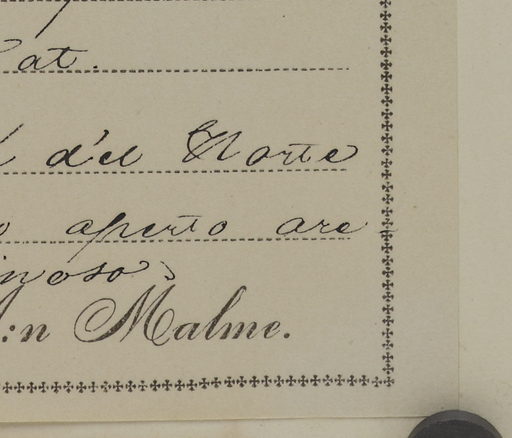 Cat.
d'el Norte
o aperto are-
noso
:n Malme.